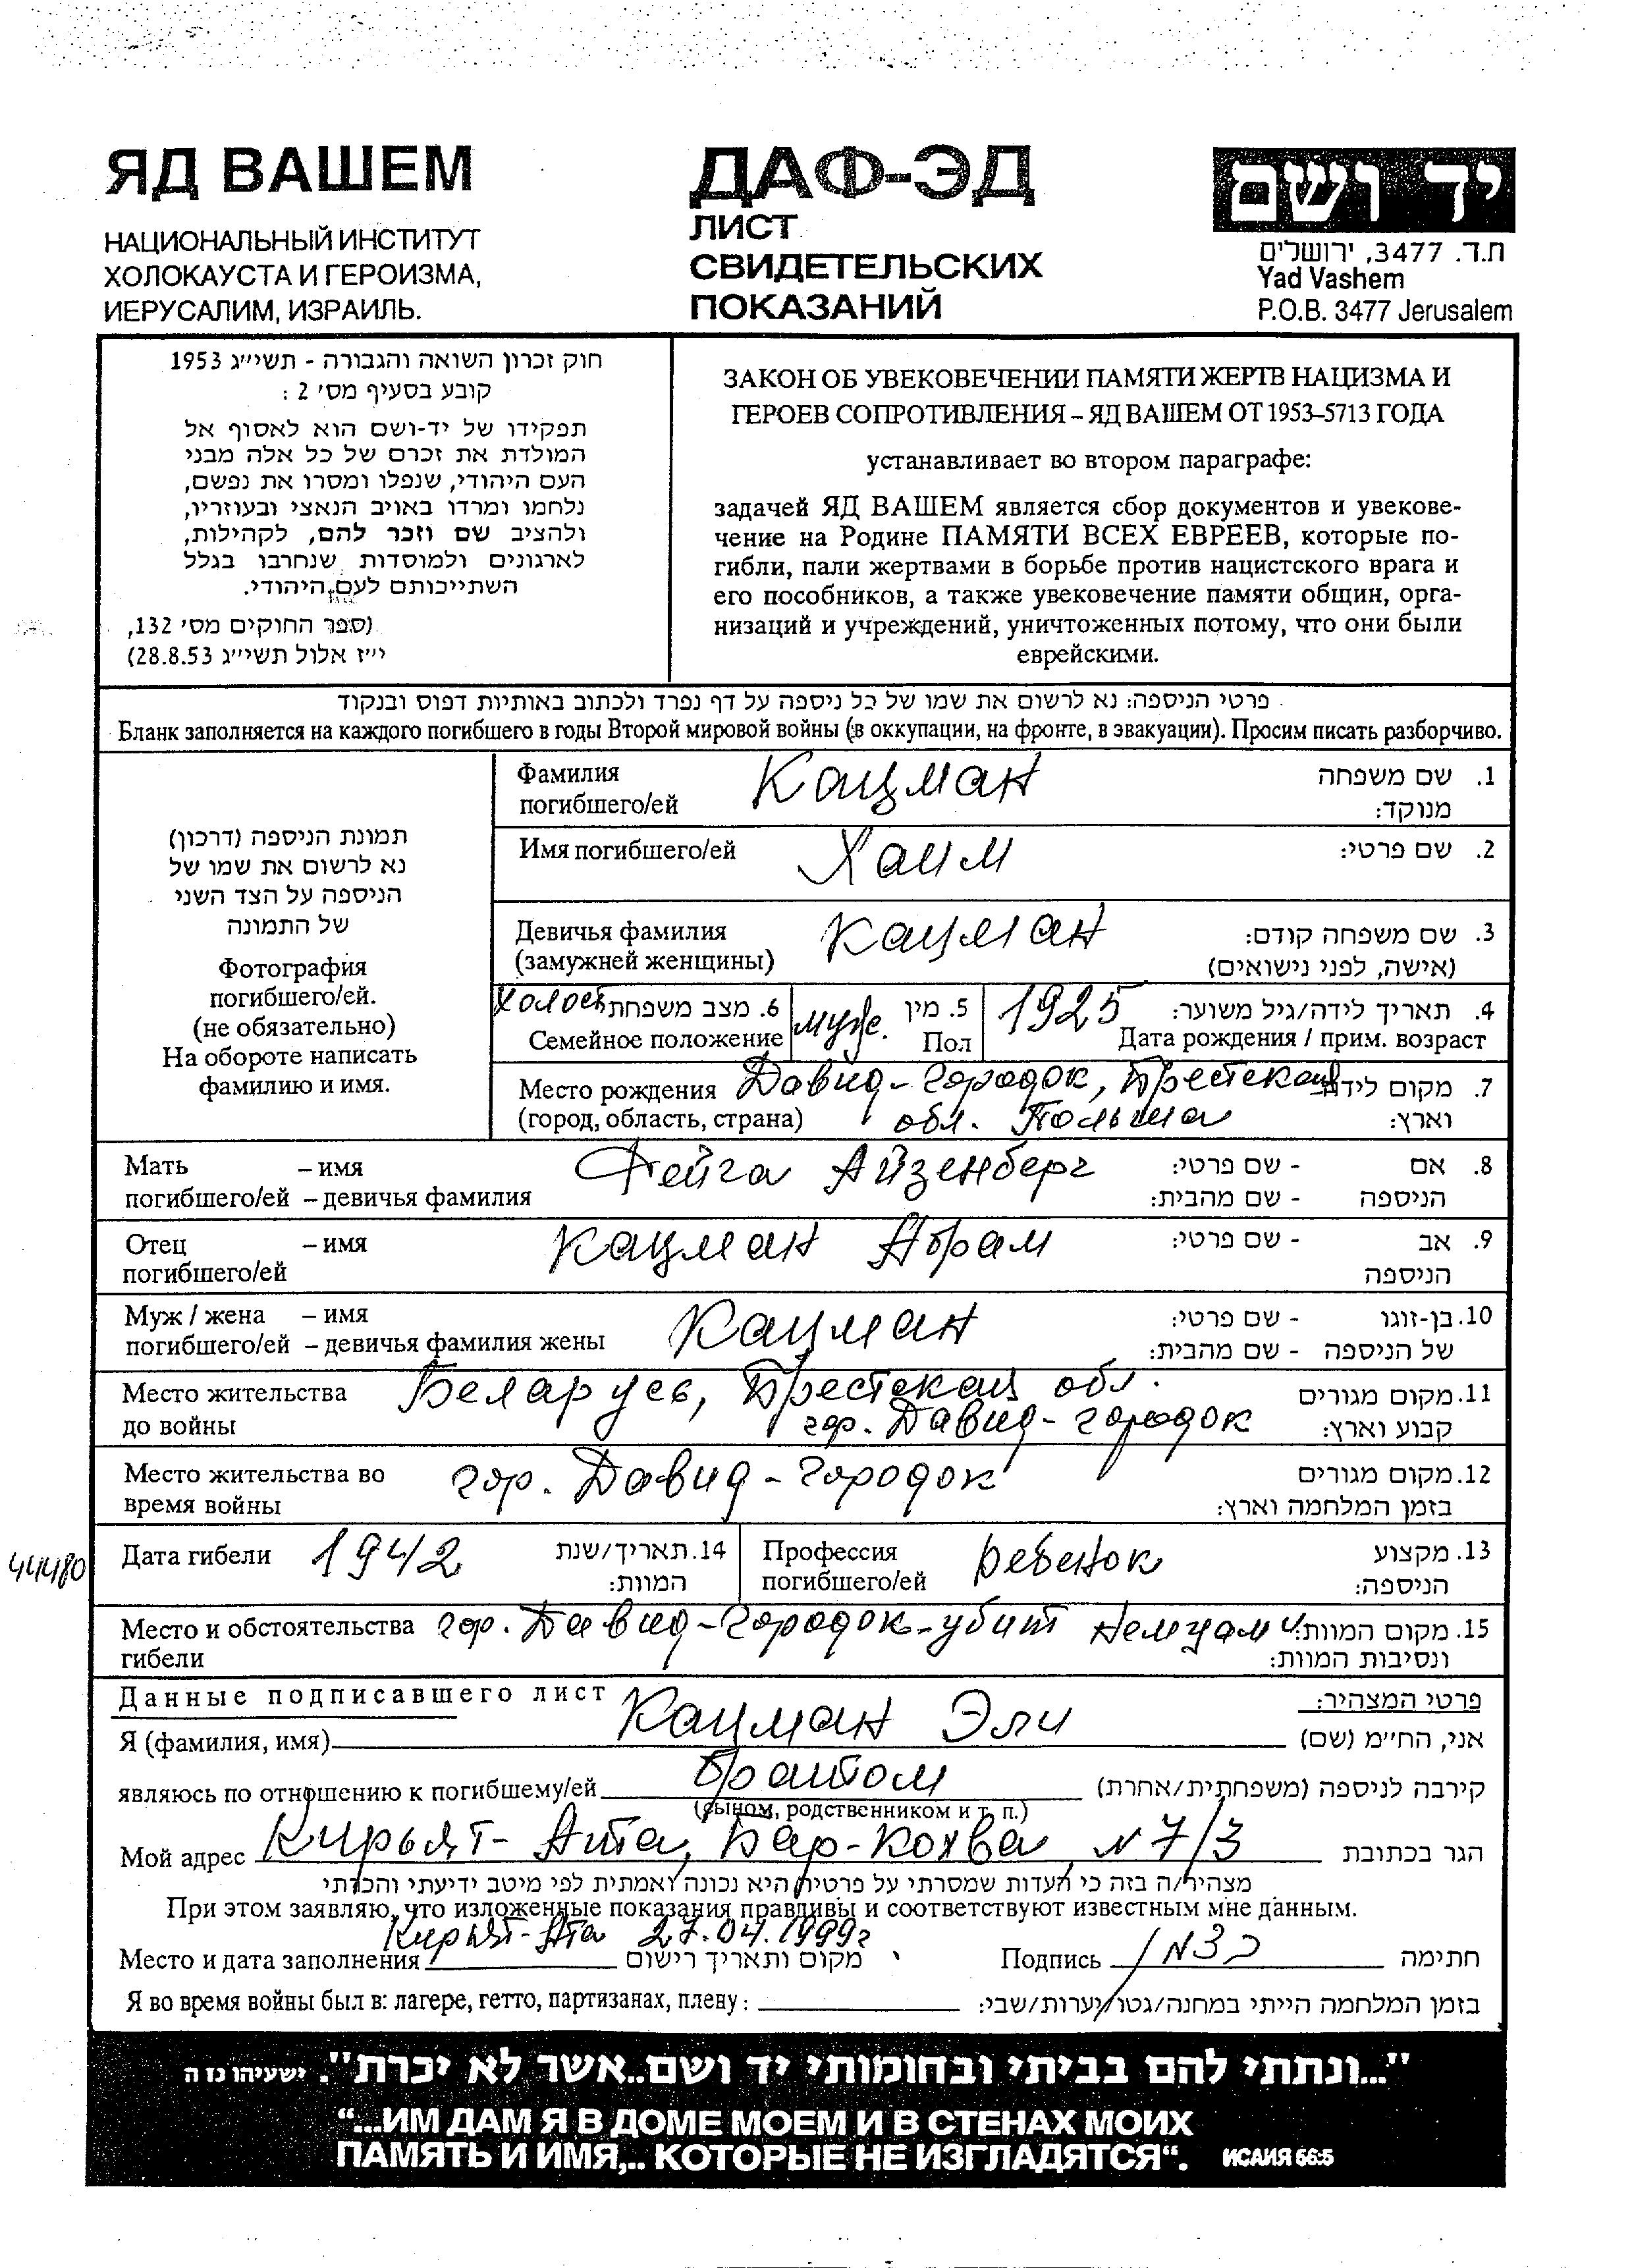 ЯД ВАШЕМ
НАЦИОНАЛЬНЫЙ ИНСТИТУТ
ХОЛОКАУСТА И ГЕРОИЗМА,
ИЕРУСАЛИМ, ИЗРАИЛЬ.
ДАФ-ЭД
ЛИСТ
СВИДЕТЕЛЬСКИХ
ПОКАЗАНИЙ
יד ושם
ת.ד. 3477, ירושלים
Yad Vashem
P.O.B. 3477 Jerusalem
חוק זכרון השואה והגבורה - תשי״ג 1953
קובע בסעיף מס׳ 2 :
תפקידו של יד-ושם הוא לאסוף אל
המולדת את זכרם של כל אלה מבני
העם היהודי, שנפלו ומסרו את נפשם,
נלחמו ומרדו באויב הנאצי ובעוזריו,
ולהציב שם וזכר להם, לקהילות,
לארגונים ולמוסדות שנחרבו בגלל
השתייכותם לעם היהודי.
(ספר החוקים מס׳ 132,
י״ז אלול תשי״ג 28.8.53)
ЗАКОН ОБ УВЕКОВЕЧЕНИИ ПАМЯТИ ЖЕРТВ НАЦИЗМА И
ГЕРОЕВ СОПРОТИВЛЕНИЯ – ЯД ВАШЕМ ОТ 1953–5713 ГОДА
устанавливает во втором параграфе:
задачей ЯД ВАШЕМ является сбор документов и увекове-
чение на Родине ПАМЯТИ ВСЕХ ЕВРЕЕВ, которые по-
гибли, пали жертвами в борьбе против нацистского врага и
его пособников, а также увековечение памяти общин, орга-
низаций и учреждений, уничтоженных потому, что они были
еврейскими.
פרטי הניספה: נא לרשום את שמו של כל ניספה על דף נפרד ולכתוב באותיות דפוס ובנקוד
Бланк заполняется на каждого погибшего в годы Второй мировой войны (в оккупации, на фронте, в эвакуации). Просим писать разборчиво.
תמונת הניספה (דרכון)
נא לרשום את שמו של
הניספה על הצד השני
של התמונה
Фотография
погибшего/ей.
(не обязательно)
На обороте написать
фамилию и имя.
Фамилия Кацман 1. שם משפחה
погибшего/ей מנוקד:
Имя погибшего/ей Хаим 2. שם פרטי:
Девичья фамилия Кацман 3. שם משפחה קודם:
(замужней женщины) (אישה, לפני נישואים)
холост 6. מצב משפחתי муж. 5. מין 1925 4. תאריך לידה/גיל משוער:
Семейное положение Пол Дата рождения / прим. возраст
Место рождения Давид-Городок, Брестская 7. מקום לידה
(город, область, страна) обл. Польша וארץ:
Мать – имя Фейга Айзенберг - שם פרטי: 8. אם
погибшего/ей – девичья фамилия - שם מהבית: הניספה
Отец – имя Кацман Абрам - שם פרטי: 9. אב
погибшего/ей הניספה
Муж / жена – имя Кацман - שם פרטי: 10. בן-זוגו
погибшего/ей – девичья фамилия жены - שם מהבית: של הניספה
Место жительства Беларусь, Брестская обл. 11. מקום מגורים
до войны гор. Давид-городок קבוע וארץ:
Место жительства во гор. Давид-Городок 12. מקום מגורים
время войны בזמן המלחמה וארץ:
44480
Дата гибели 1942 14. תאריך/שנת Профессия ребенок 13. מקצוע
המוות: погибшего/ей הניספה:
Место и обстоятельства гор. Давид-Городок-убит немцами 15. מקום המוות
гибели ונסיבות המוות:
Данные подписавшего лист פרטי המצהיר:
Я (фамилия, имя) Кацман Эли אני, הח״מ (שם)
являюсь по отношению к погибшему/ей братом קירבה לניספה (משפחתית/אחרת)
(сыном, родственником и т. п.)
Мой адрес Кирьят-Ата, Бар-Кохва N 7/3 הגר בכתובת
מצהיר/ה בזה כי העדות שמסרתי על פרטיה היא נכונה ואמתית לפי מיטב ידיעתי והכרתי
При этом заявляю, что изложенные показания правдивы и соответствуют известным мне данным.
Место и дата заполнения Кирьят-Ата 27.04.1999г מקום ותאריך רישום Подпись כצמן חתימה
Я во время войны был в: лагере, гетто, партизанах, плену: בזמן המלחמה הייתי במחנה/גטו/יערות/שבי:
"...ונתתי להם בביתי ובחומותי יד ושם..אשר לא יכרת". ישעיהו נז ה
“...ИМ ДАМ Я В ДОМЕ МОЕМ И В СТЕНАХ МОИХ
ПАМЯТЬ И ИМЯ,.. КОТОРЫЕ НЕ ИЗГЛАДЯТСЯ“. ИСАИЯ 56:5